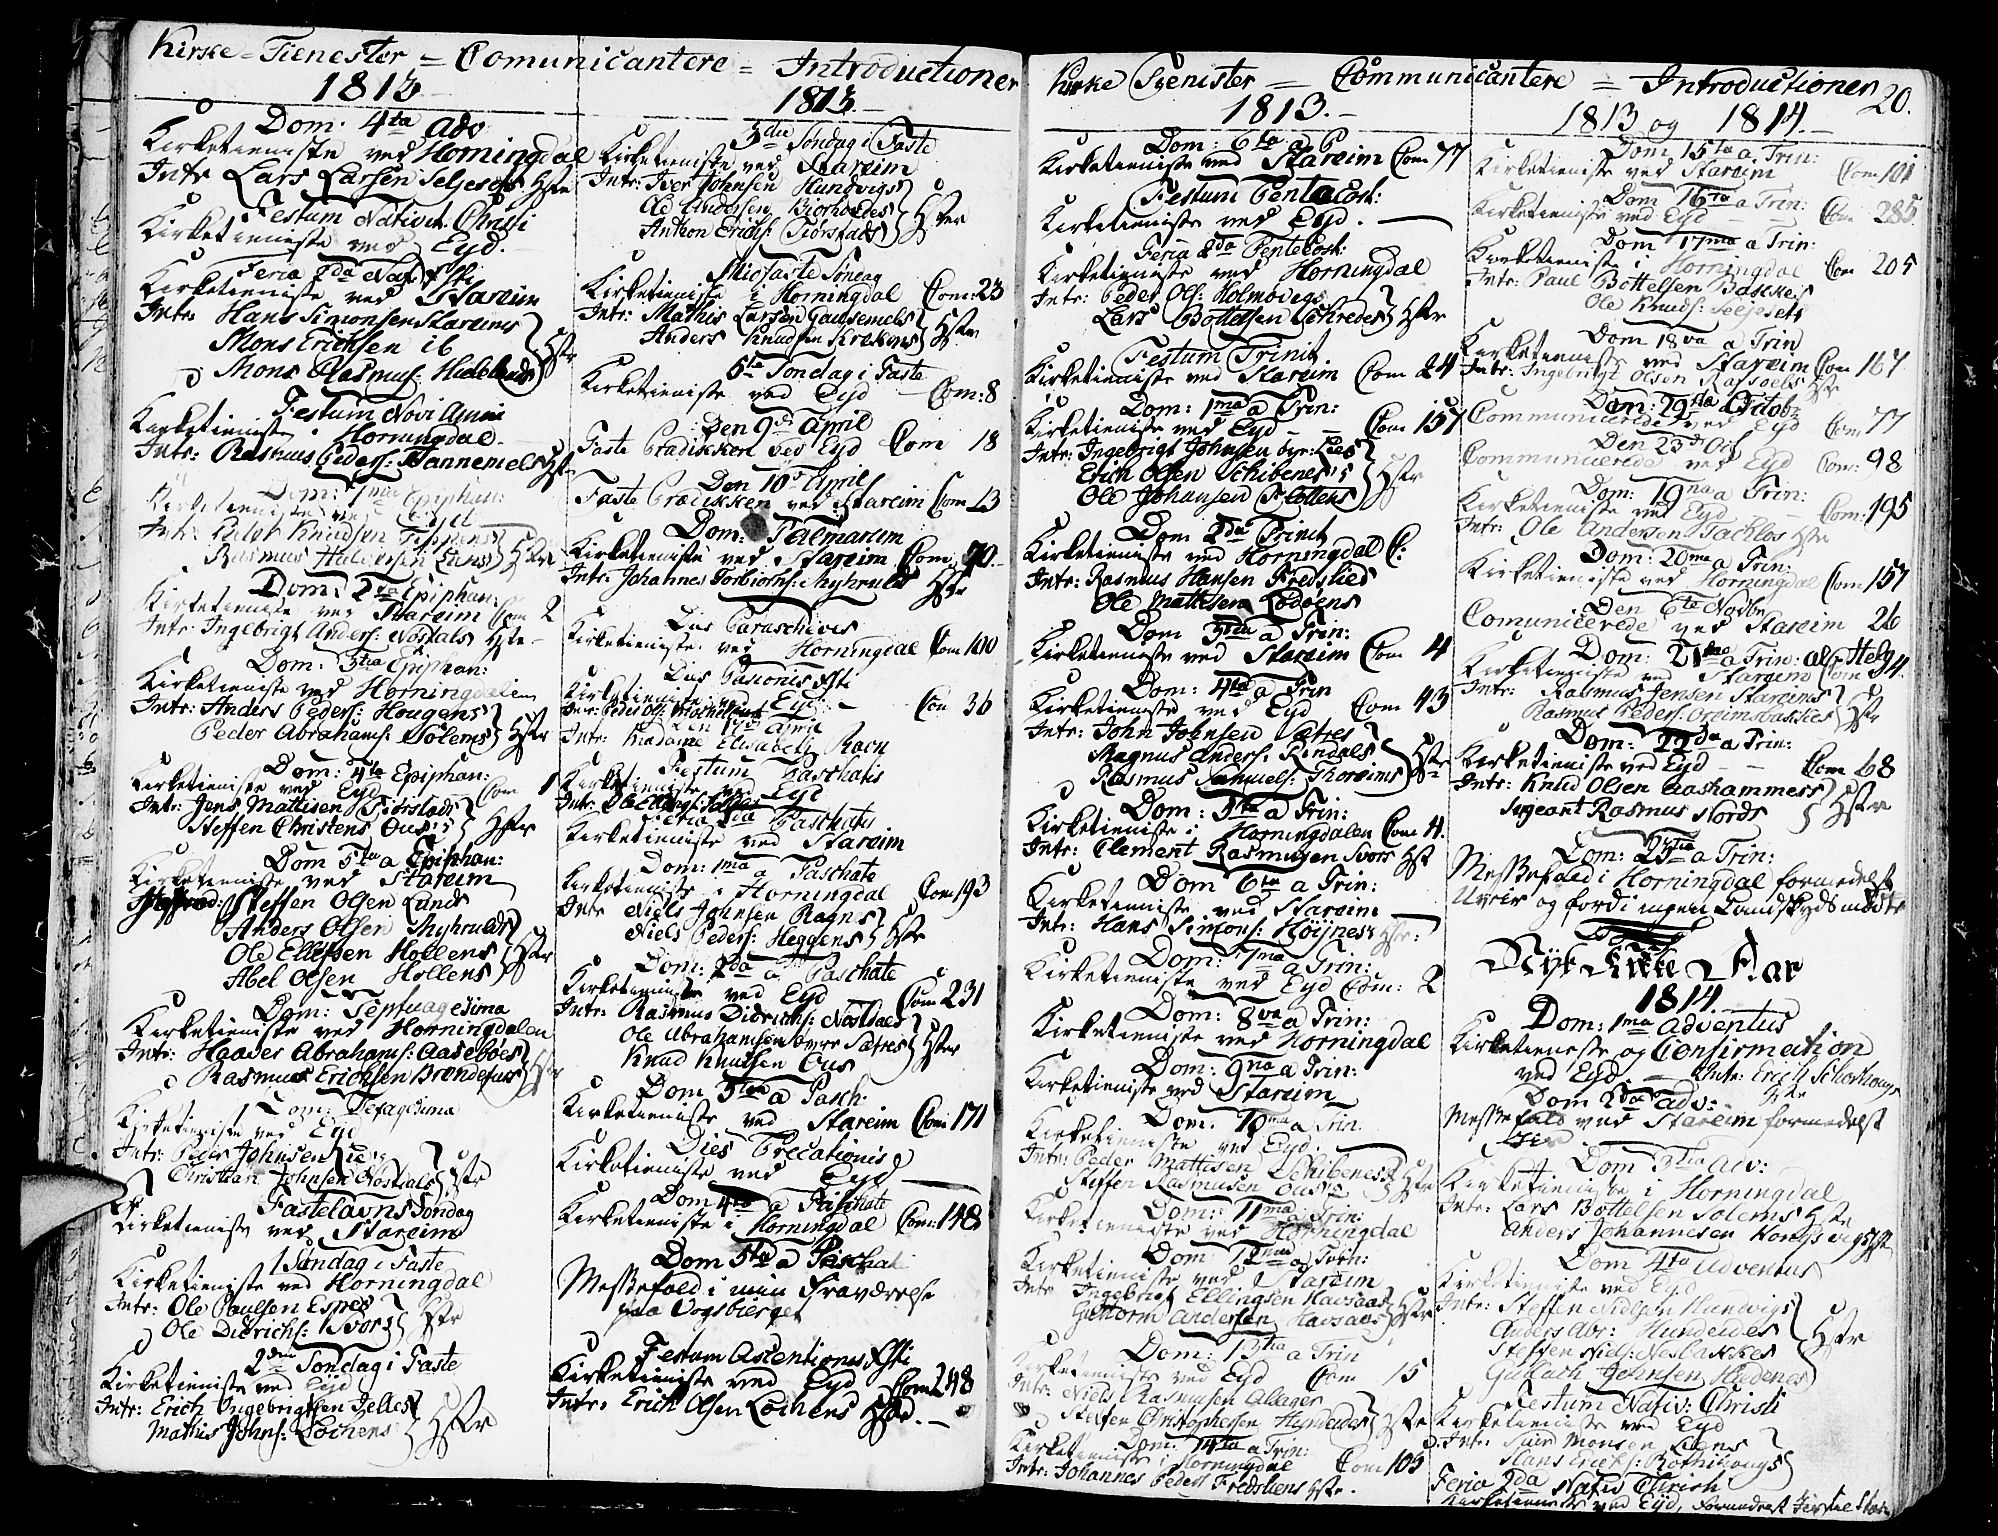 Kirke=Tienester = Comunicantere = Introductioner
1813
Dom: 4ta Adv
Kirketieniste ved Horningdal
Intr Lars Larsen Seljesets Hstr
Festum Nativit. Christi
Kirketieneste ved Eyd.
Feria 2da Nat. Xsti
Kirketieniste ved Stareim
Intr: Hans Simonsen Stareims
Mons Erichsen ib
Mons Rasmus: HStr
Festum Novi Anni
Kirketieniste i Horningdal
Intr: Rasmus Peders: Hannemels Hstr
Dom: 1ma Epiphan:
Kirketieniste ved Eyd
Intr: Peder Knudsen
Rasmus Hstr
Dom: 2da Epiphan:
Kirketieniste ved Stareim Com 2
Intr: Ingebrigt Anders: Nøstdals Hstr
Dom: 3tia Epiphan:
Kirketieniste ved Horningdalen
Intr: Anders Peders: Hougens
Peder Abrahams: Solems Hstr
Dom: 4ta Epiphan:
Kirketieniste ved Eyd Com 1
Intr: Jens Mattisen Hiorstads
Steffen Christens Ous Hstr
Dom 5ta a Epiphan:
Kirketieniste ved Stareim
Steffen Olsen Lunds
Anders Olsen Myhrulds
Ole Ellefsen Hollens
Abel Olsen Hollens Hstr
Dom: Septuagesima
Kirketieniste ved Horningdalen
Intr: Haaver Abrahams: Aaseboes
Rasmus Erichsen Hstr
Dom:
Kirketieniste ved Eyd
Intr: Peder Johnsen
Christian Johnsen Nøstdals Hstr
Fastelavns Søndag
Kirketieniste ved Stareim
1 Søndag i Faste
Kirketieniste ved Horningdal
Intr: Ole Paulsen Espes
Ole Didrichs: Svors Hstr
2den Søndag i Faste
Kirketieniste ved Eyd
Intr: Erich Ingebrigtsen
Mathis Johns: Lothens Hstr
1813.
3die Søndag i Faste
Kirketieniste ved Stareim
Intr: Iver Johnsen Hundvigs
Ole Andersen
Anthon Erichs: Hstr
Midfaste Søndag
Kirketieniste i Horningdal Com: 23
Intr: Mathis Larsen Gausemels
Anders Knudsen Hstr
5te Søndag i Faste
Kirketieniste ved Eyd Com: 8
Den 9de April
Faste Prædikken ved Eyd Com 18
Den 10de April
Faste Prædikken ved Stareim Com 13
Dom: Palmarum
Kirketieniste ved Stareim Com: 70
Intr: Johannes Torbiorns: Myhrulds Hstr
Dies Parascheves
Kirketieniste ved Horningdal Com 100
Dies Pasionis Xsti
Kirketieniste ved Eyd: Com 36
April
Intr: Madame Elisabeth Ravn
Festum Paschatis
Kirketieniste ved Eyd
Feria 2da Paschatis
Kirketieniste ved Stareim
Dom: 1ma a Paschate
Kirketieniste i Horningdal Com 193
Intr Niels Johnsen Ragns
Niels Peders: Heggens Hstr
Dom: 2da a Paschate
Kirketieniste ved Eyd Com 231
Intr: Rasmus Didrichs: Nøstdals
Ole Abrahamsen Sætres
Knud Knudsen Ous Hstr
Dom 3tia a Pasch:
Kirketieniste ved Stareim Com: 171
Dies Precationis
Kirketieniste ved Eyd
Dom 4ta a Paschate
Kirketieniste i Horningdal Com: 148
Dom 5ta a Paschate
Messefald i min Fraværelse
paa Vogsberget
Festum Ascentionis Xsti
Kirketieniste ved Eyd Com 248
Intr: Erich Olsen Lothens Hstr.
Kirke Tienister = Communicantere = Introductioner 20.
1813.
Dom: 6ta a P
Kirketieniste ved Stareim Com 77
Festum Pentacost:
Kirketieniste ved Eyd.
Feria 2da Pentekost:
Kirketieniste ved Horningdal
Intr: Peder Ols: Holmøvigs
Lars Bottelsen Schredes Hstr
Festum Trinit.
Kirketieniste ved Stareim Com 24
Dom: 1ma a Trin:
Kirketieniste ved Eyd Com 157
Intr: Ingebrigt Johnsen
Erich Olsen Schibenes
Ole Johansen Hstr
Dom 2da Trinit
Kirketieniste ved Horningdal C:
Intr: Rasmus Hansen Fredslied
Ole Mattesen Lødøens
Dom 3tia a Trin:
Kirketieniste ved Stareim Com 4
Dom: 4ta a Trin
Kirketieniste ved Eyd Com 43
Intr: John Johnsen Sætres
Magnus Anders: Rindals
Rasmus Samuels: Thoreims Hstr
Dom: 5ta a Trin:
Kirketieniste i Horningdalen Com 4.
Intr: Clement Rasmussen Svors Hst
Dom 6ta a Trin:
Kirketieniste ved Stareim
Intr: Hans Simons: Høijnes Hstr:
Dom: 7ma a Trin:
Kirketieniste ved Eyd Com: 2
Dom: 8va a Trin:
Kirketieniste ved Horningdal
Dom: 9na a Trin:
Kirketieniste ved Stareim
Dom: 10ma a Trin.
Kirketieniste ved Eyd:
Intr: Peder Mattisen Schibenes
Steffen Rasmusen Ous Hstr
Dom: 11ma a Trin:
Kirketieniste ved Horningdal
Dom 12ma a Trin:
Kirketieniste ved Stareim
Intr Ingebrigt Ellingsen Havsaas
Guttorm Andersen Havsaas Hstr
Dom: 13tia a Trin
Kirketieniste ved Eyd Com 15
Intr: Niels Rasmusen Aldager
Steffen Christophersen Hundeides Hstr
Dom: 14ta a Trin:
Kirketieniste i Horningdal Com 105
Intr: Johannes Peders Fredsliens Hstr.
1813 og 1814.
Dom 15ta a Trin:
Kirketieniste ved Stareim Com 101
Dom 16ta a Trin:
Kirketieniste ved Eyd Com 285
Dom 17ma a Trin:
Kirketieniste i Horningdal Com 205
Intr: Paul Bottelsen
Ole Knuds: Seljesets
Dom 18va a Trin
Kirketieniste ved Stareim Com 167
Intr: Ingebrigt Olsen Hstr
Den Octob:
Communicerede ved Eyd Com 77
Den 23de Oct
Communicerede ved Eyd Com: 98
Dom: 19na a Trin:
Kirketieniste ved Eyd Com: 195
Intr: Ole Andersen Hstr
Dom: 20ma a Trin:
Kirketieniste ved Horningdal Com 157
Den 6te Novbr
Comunicerede ved Stareim 26
Dom: 21ma a Trin: al: Helg
Kirketieniste ved Stareim Com 34.
Intr: Rasmus Jensen Stareims
Rasmus Peders: Hstr
Dom: 22da a Trin:
Kirketieniste ved Eyd Com 68
Intr: Knud Olsen Aashammers
Sergeant Rasmus Nords Hstr
Dom: 23tia a Trin:
Messefald i Horningdal formedelst
Uveir og fordi ingen Landskyds mødte
Nyt Kirke Aar
1814.
Dom: 1ma Adventus
Kirketieneste og Confirmation
ved Eyd Intr: Erich Hstr
Dom 2da Adv:
Messefald ved Stareim formedelst
Veir
Dom 3tia Adv:
Kirketieniste i Horningdal
Intr: Lars Bottelsen Solems Hstr
Anders Johannesen Hongsvigs Hstr
Dom 4ta Adventus
Kirketieniste ved Eyd
Intr: Steffen Nielsen Hundvigs
Anders Abr: Hundeides
Steffen Niels: Nesbakkes
Gullach Johnsen Hstr
Festum Nativ: Christi
Kirketieniste ved Eyd
Intr: Monsen
Hans Erichs:
Feria 2da Nativ Christi
Kirketieniste ved Eyd,